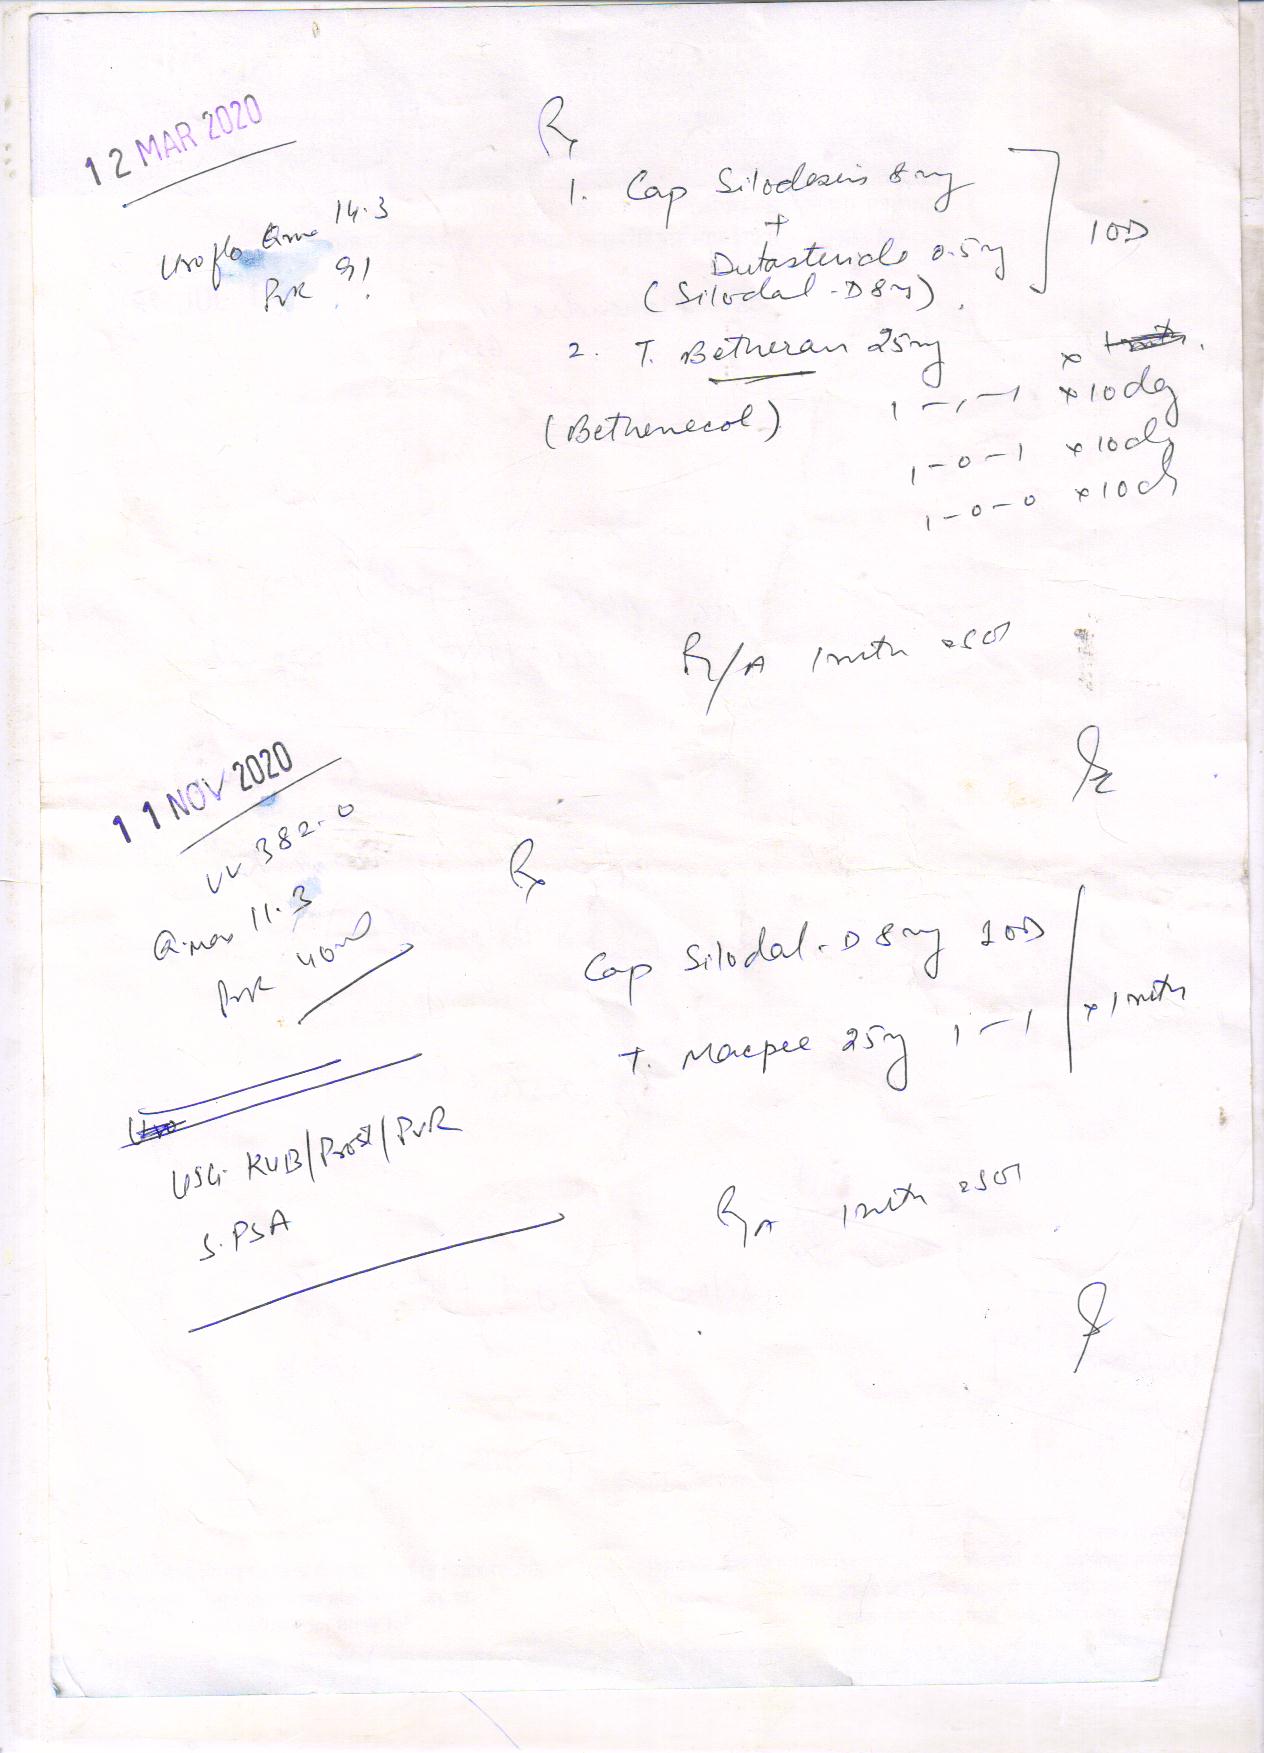 12 MAR 2020
Uroflo Qmax 14.3
PVR 91
Rx
1. Cap Silodosin 8mg
+
Dutasteride 0.5mg
1 OD
(Silodal-D 8mg).
2. T. Betheran 25mg
x 1 mth.
(Bethenecol)
1-1-1 x 10 dy
1-0-1 x 10 dy
1-0-0 x 10 dy
R/A 1 mth
11 NOV 2020
VV 382.0
Q.max 11.3
PVR 40ml
Rx
Cap Silodal-D 8mg 1 OD
T. 25mg 1-1
x 1 mth
USG KUB/Prost/PVR
S.PSA
R/A 1 mth